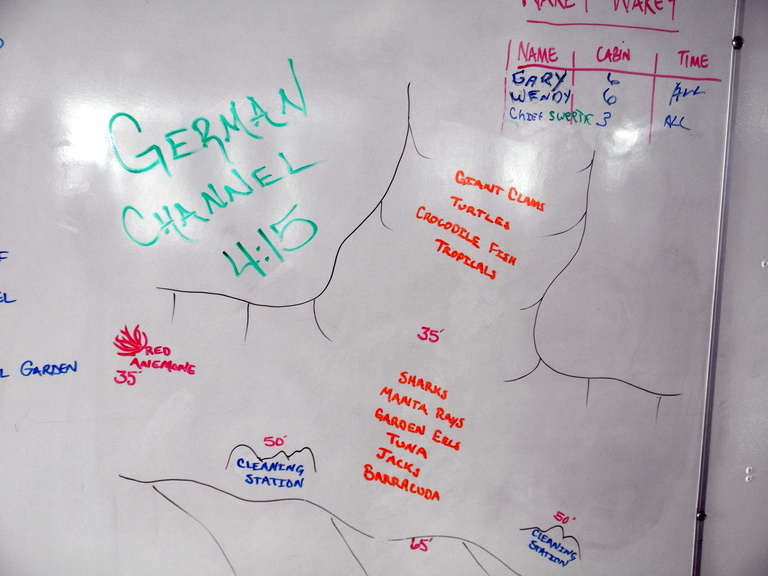 WAKEY WAKEY
NAME CABIN TIME
GARY 6
WENDY 6 ALL
CHIEF 3 ALL
GERMAN
CHANNEL
4:15
GIANT CLAMS
TURTLES
CROCODILE FISH
TROPICALS
35'
RED
ANEMONE
35'
GARDEN
SHARKS
MANTA RAYS
GARDEN EELS
TUNA
JACKS
BARRACUDA
50'
CLEANING
STATION
65'
50'
CLEANING
STATION